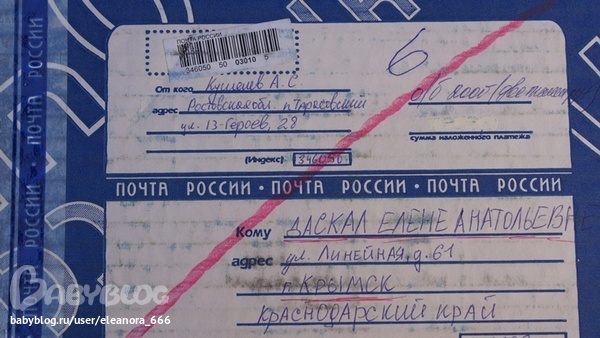 ПОЧТА РОССИИ
346050 50 03010 5
6
От кого Кушелев А.С
адрес Ростовская обл п.Тарасовский
ул. 13-Героев, 28
о/б 2000
сумма наложенного платежа
(Индекс) 346050
ПОЧТА РОССИИ • ПОЧТА РОССИИ • ПОЧТА РОССИИ
Кому ДАСКАЛ ЕЛЕНЕ АНАТОЛЬЕВНЕ
адрес ул. ЛИНЕЙНАЯ, д. 61
г. КРЫМСК
КРАСНОДАРСКИЙ КРАЙ
ПОЧТА РОССИИ
BABYBLOG
babyblog.ru/user/eleanora_666